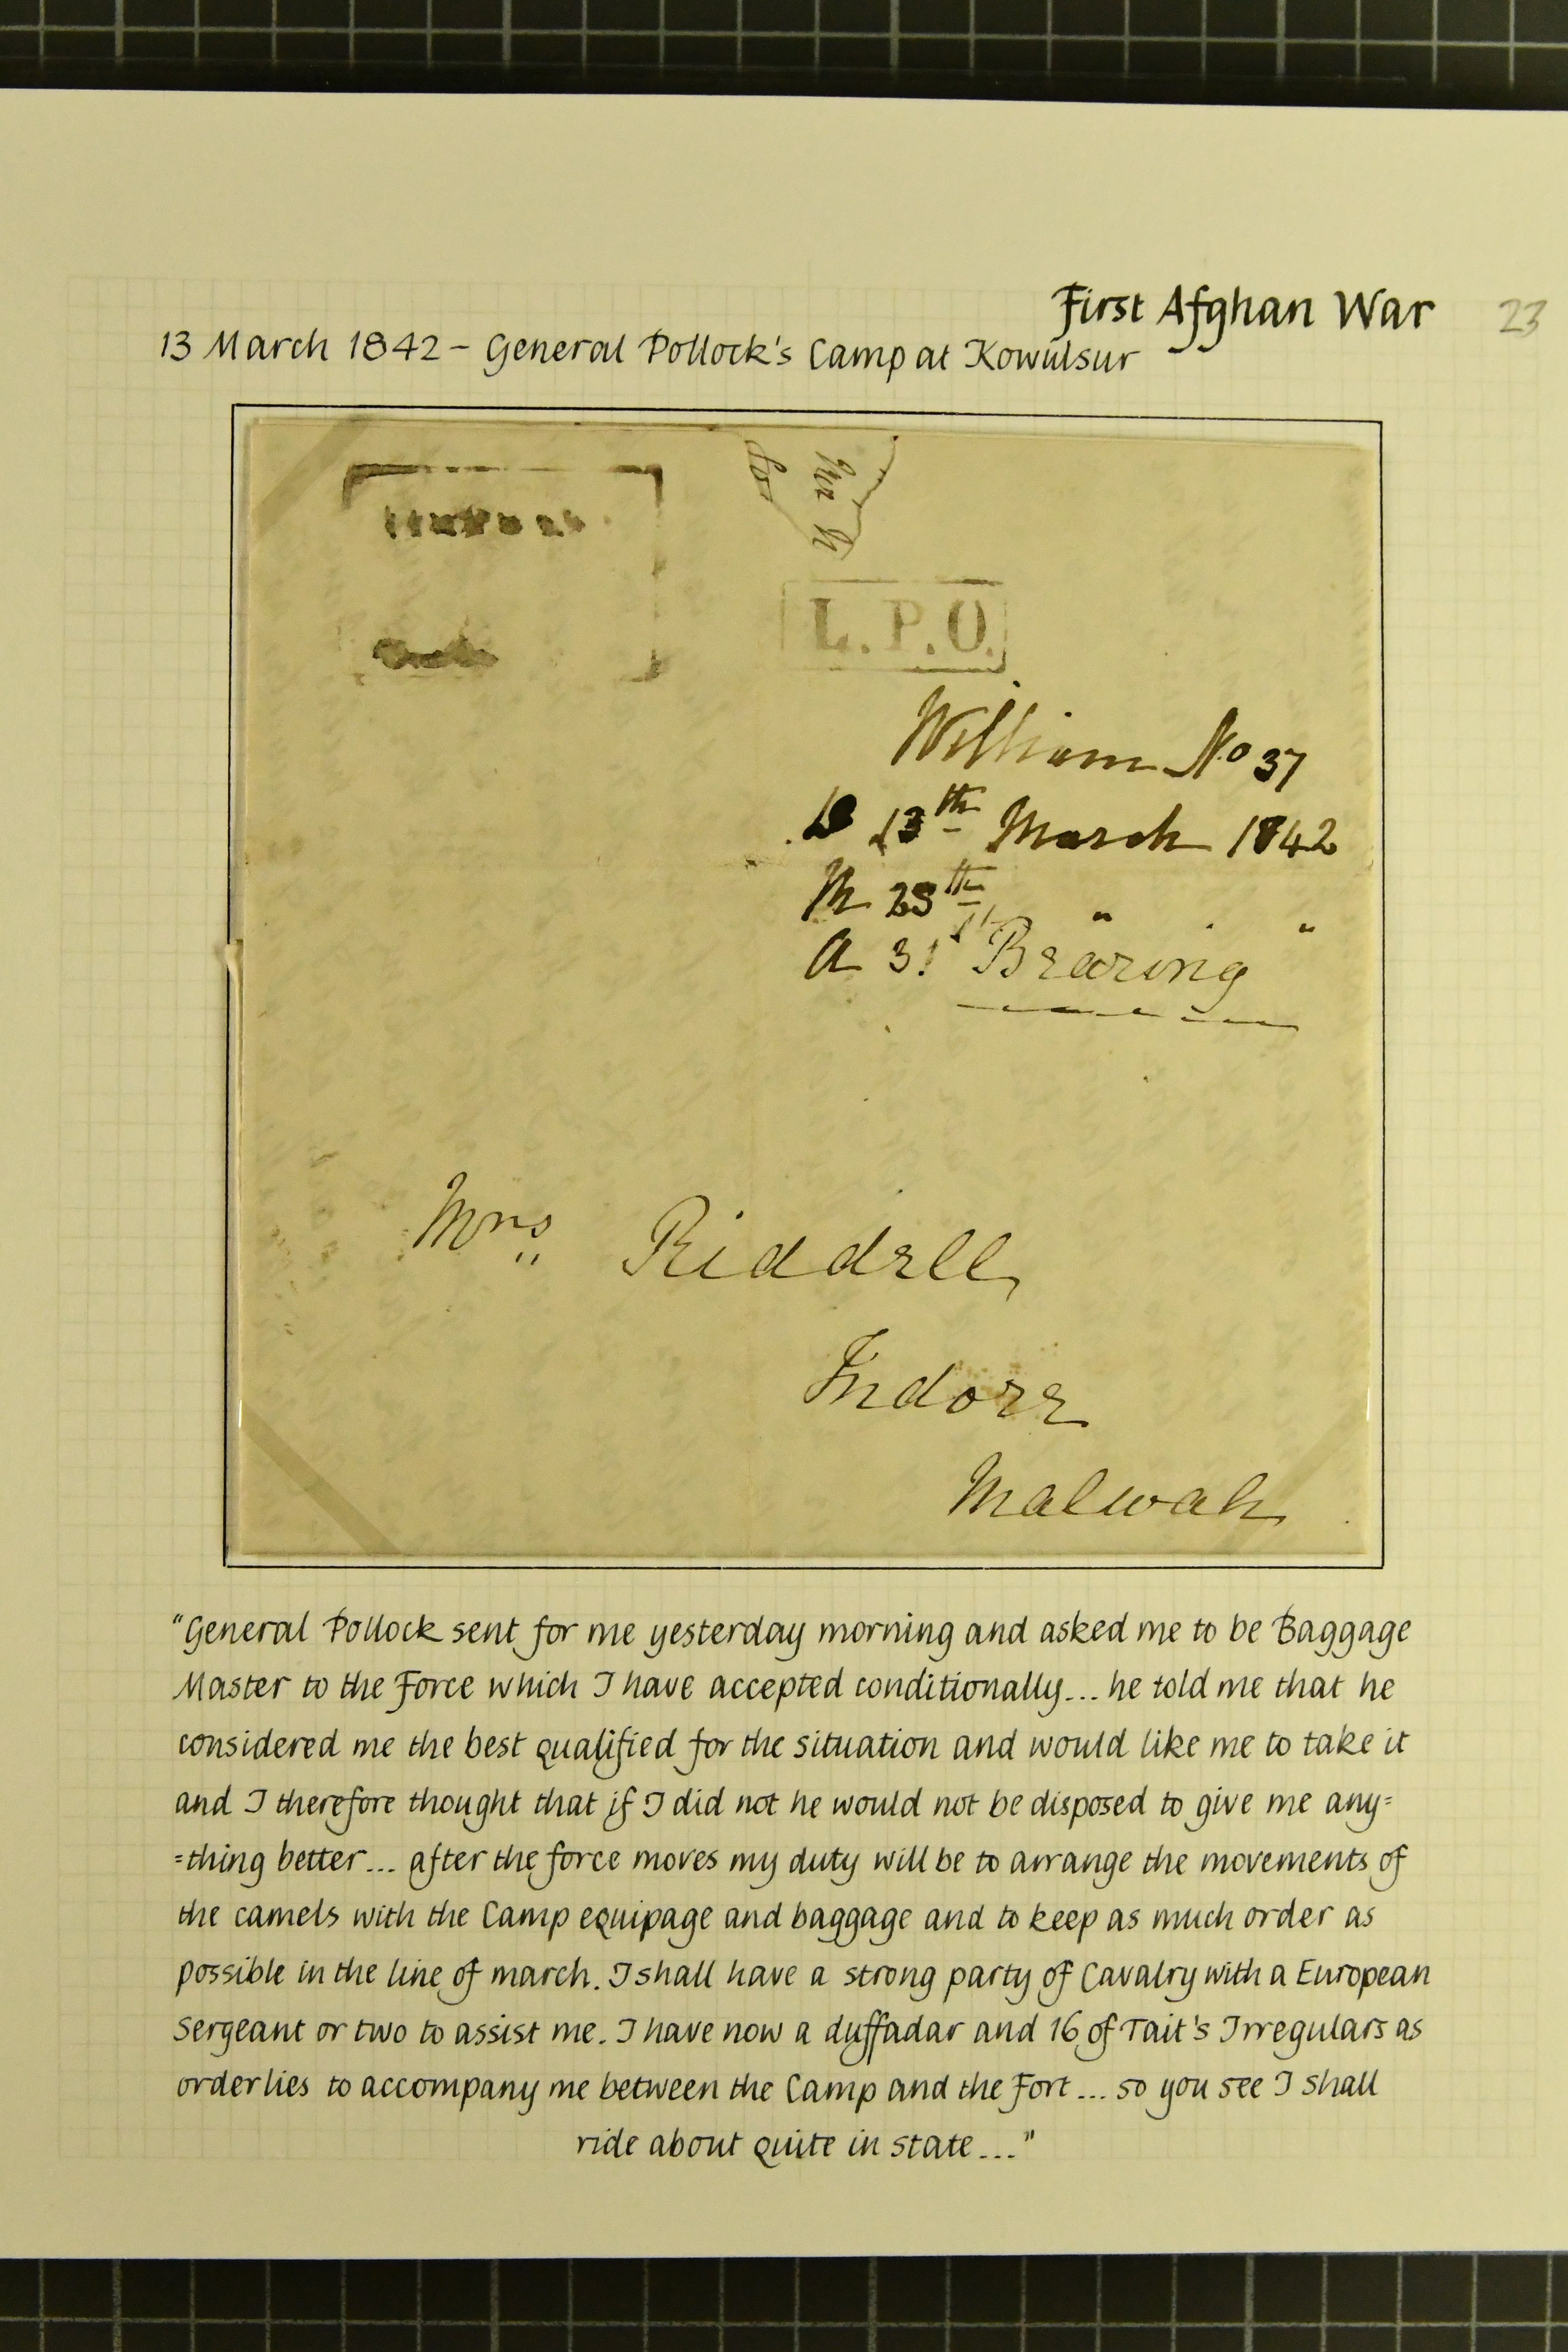 First Afghan War 23
13 March 1842 – General Pollock's Camp at Kowulsur
L.P.O.
William No 37
D 13th March 1842
" "
A 31st Bearing
Mrs Riddell
Indore
Malwah
"General Pollock sent for me yesterday morning and asked me to be Baggage
Master to the Force which I have accepted conditionally... he told me that he
considered me the best qualified for the situation and would like me to take it
and I therefore thought that if I did not he would not be disposed to give me any=
=thing better... after the force moves my duty will be to arrange the movements of
the camels with the Camp equipage and baggage and to keep as much order as
possible in the line of march. I shall have a strong party of Cavalry with a European
Sergeant or two to assist me. I have now a duffadar and 16 of Tait's Irregulars as
orderlies to accompany me between the Camp and the Fort... so you see I shall
ride about quite in state..."